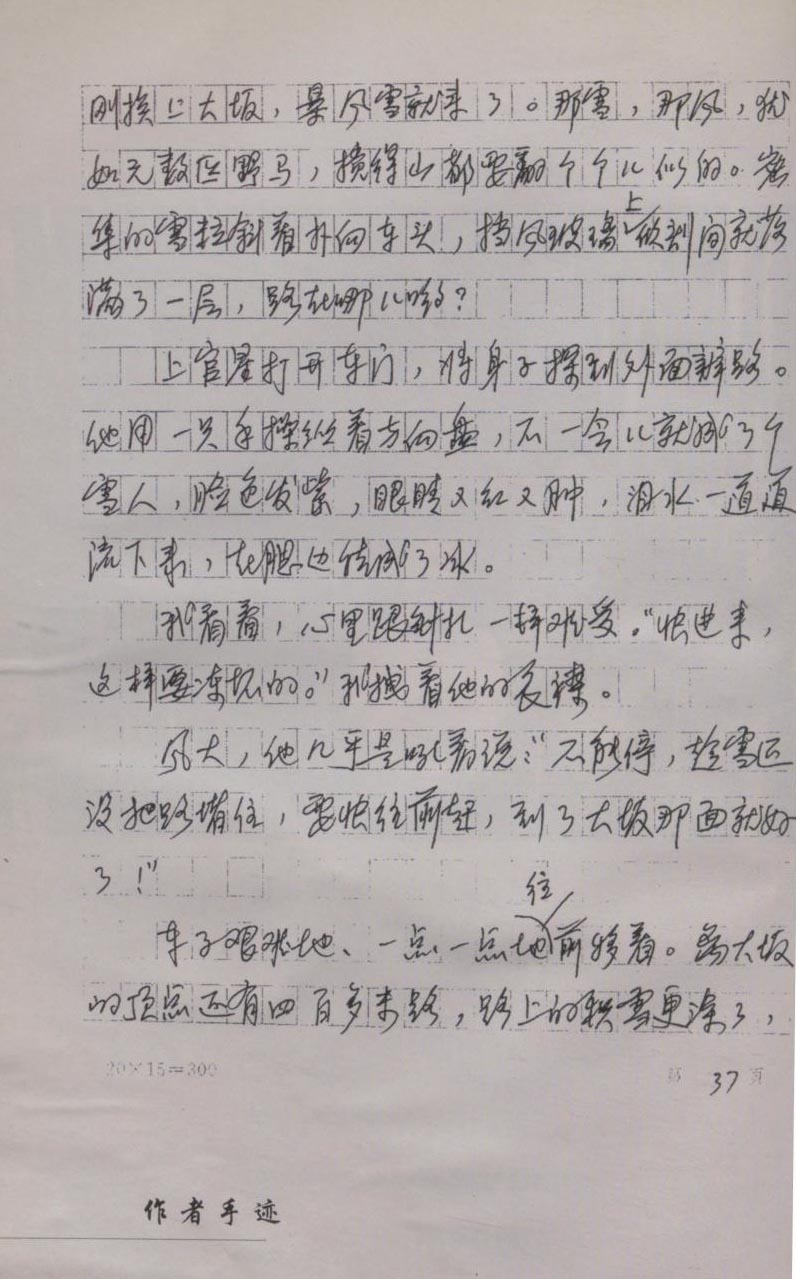 刚挨上大坂，暴风雪就来了。那雪，那风，犹
如无数匹野马，搅得山都要翻个个儿似的。密
集的雪粒斜着扑向车头，挡风玻璃上顷刻间就落
满了一层，路在哪儿哟？
上官星打开车门，将身子探到外面辨路。
他用一只手操纵着方向盘，不一会儿就成了个
雪人，脸色发紫，眼睛又红又肿，泪水一道道
流下来，在腮边结成了冰。
我看着，心里跟针扎一样难受。“快进来，
这样要冻坏的。”我拽着他的衣襟。
风大，他几乎是吼着说：“不能停，趁雪还
没把路堵住，要快往前赶，到了大坂那面就好
了！”
车子艰难地、一点一点地往前移着。离大坂
的顶点还有四百多米路，路上的积雪更深了，
20×15=300 第 37 页
作者手迹